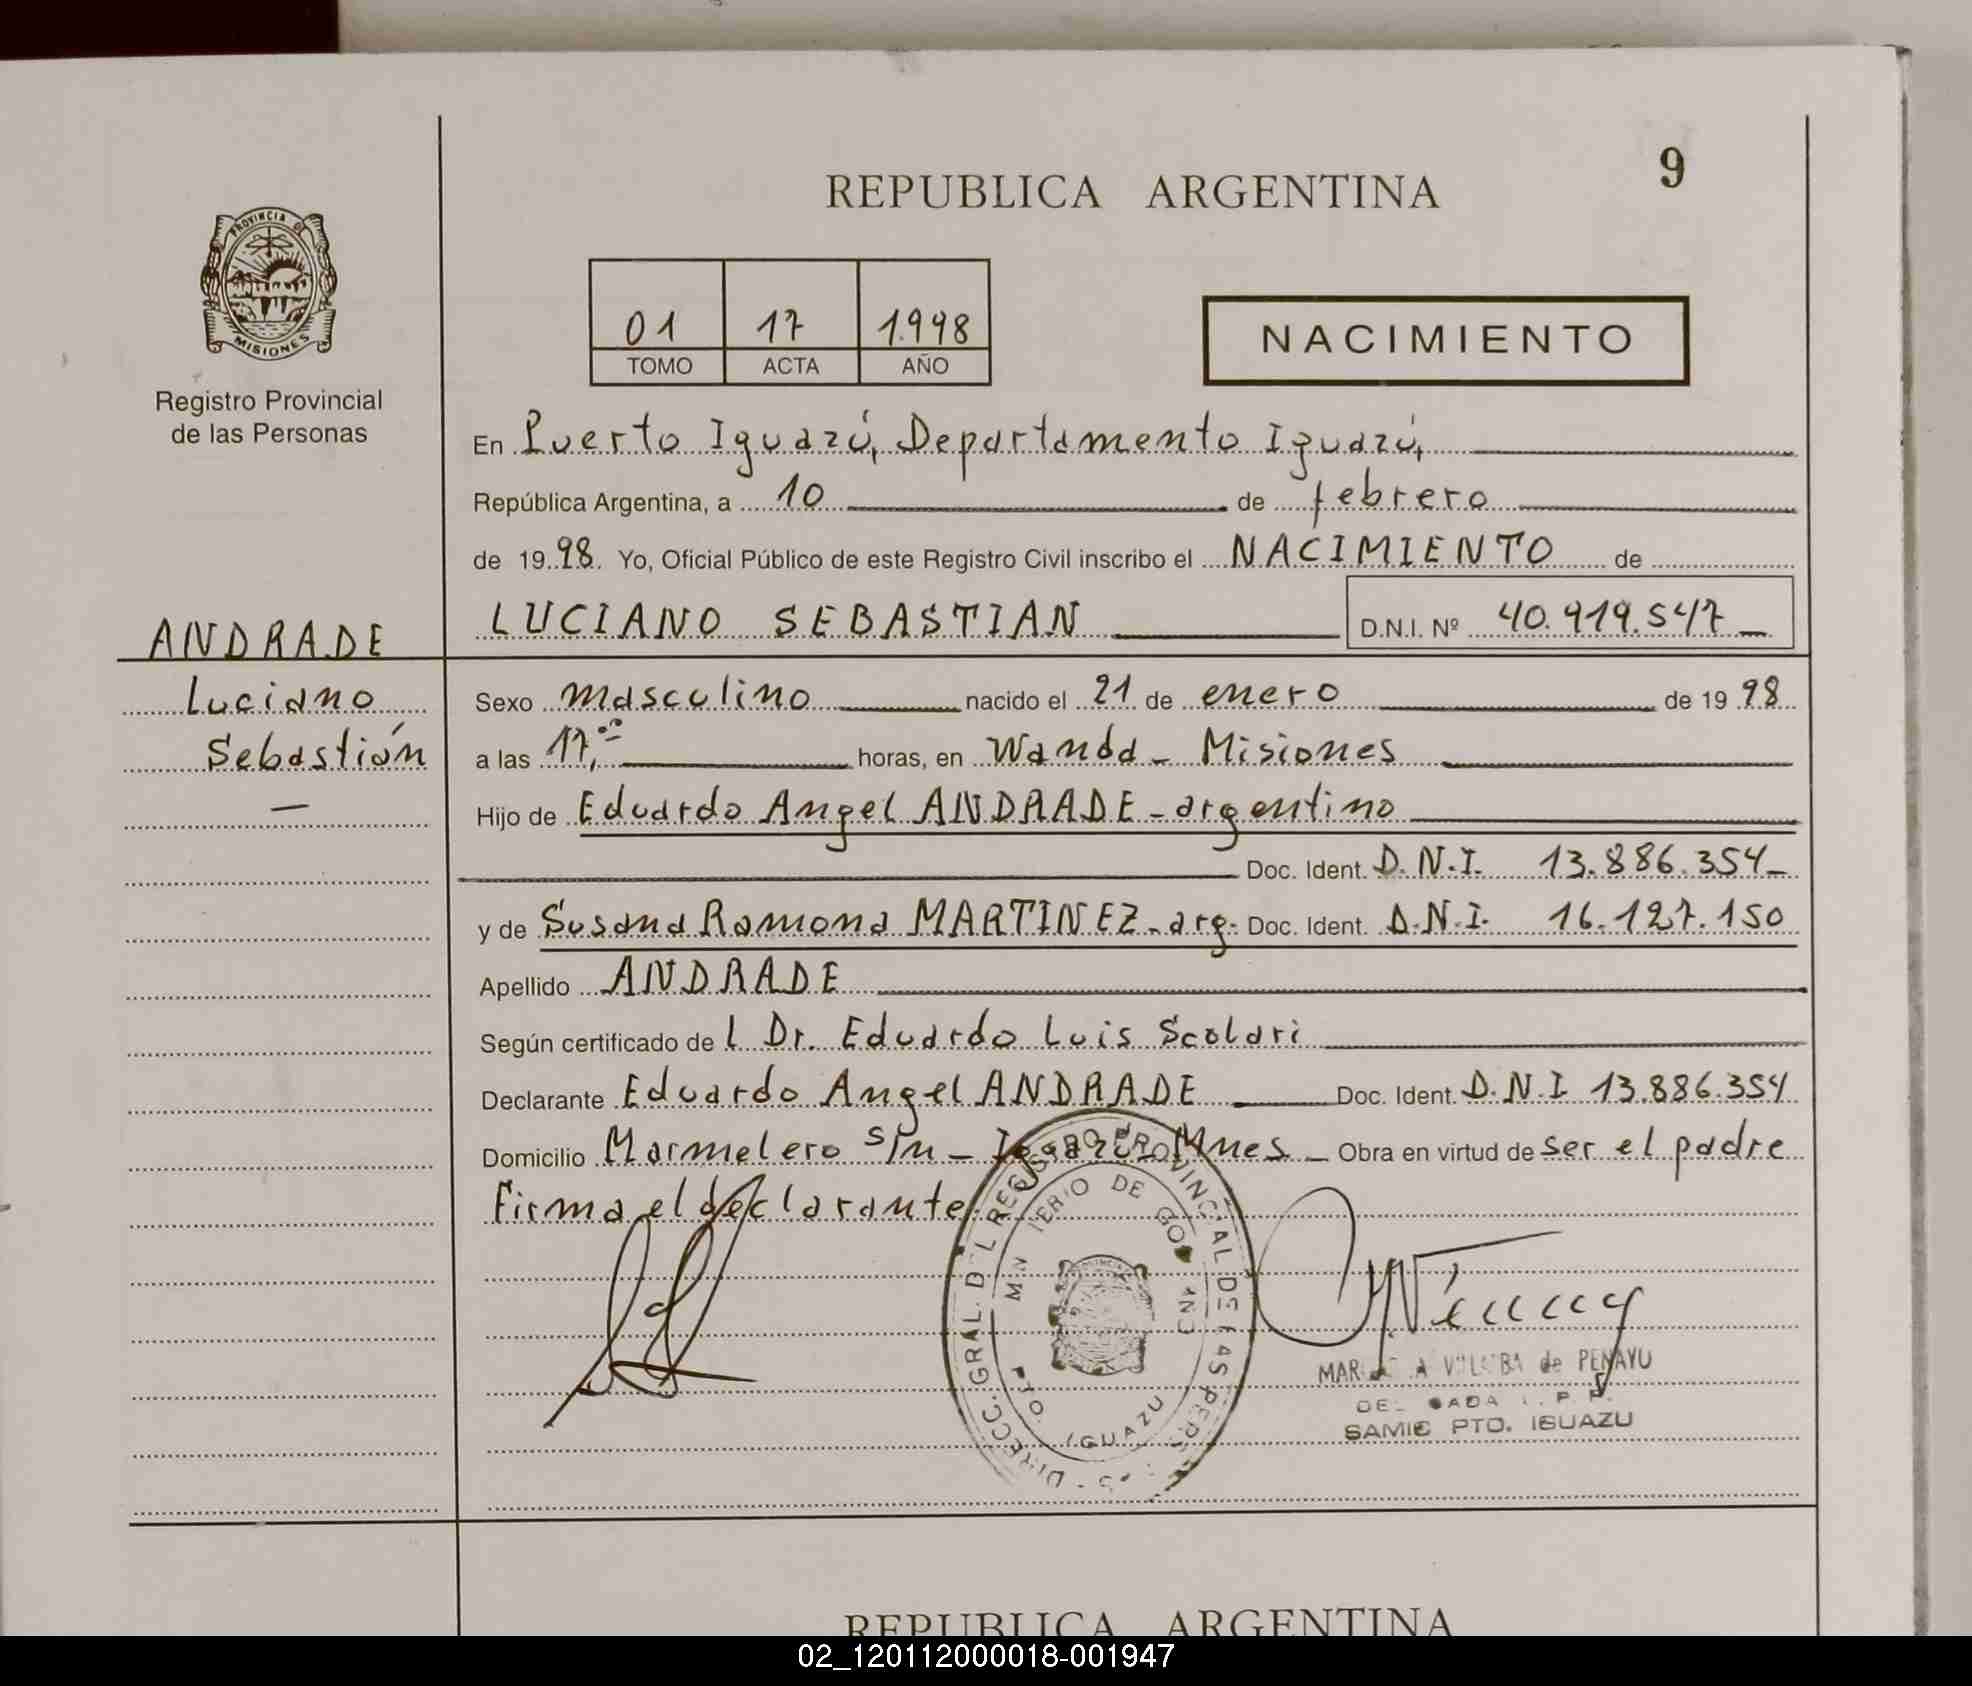 9
REPUBLICA ARGENTINA
PROVINCIA DE
MISIONES
Registro Provincial
de las Personas
01 17 1.998
TOMO ACTA AÑO
NACIMIENTO
En Puerto Iguazú, Departamento Iguazú,
República Argentina, a 10 de febrero
de 19 98. Yo, Oficial Público de este Registro Civil inscribo el NACIMIENTO de
LUCIANO SEBASTIAN D.N.I. Nº 40.919.547
ANDRADE
Luciano
Sebastián
Sexo masculino nacido el 21 de enero de 19 98
a las 17,00 horas, en Wanda - Misiones
Hijo de Eduardo Angel ANDRADE - argentino
Doc. Ident. D.N.I. 13.886.354
y de Susana Ramona MARTINEZ - arg. Doc. Ident. D.N.I. 16.127.150
Apellido ANDRADE
Según certificado de l Dr. Eduardo Luis Scolari
Declarante Eduardo Angel ANDRADE Doc. Ident. D.N.I 13.886.354
Domicilio Marmelero s/n - Iguazú - Mnes - Obra en virtud de ser el padre
Firma el declarante.
DIRECC. GRAL. DEL REGISTRO PROVINCIAL DE LAS
IGUAZU
de PENAYU
SAMIC PTO. IGUAZU
REPUBLICA ARGENTINA
02_120112000018-001947